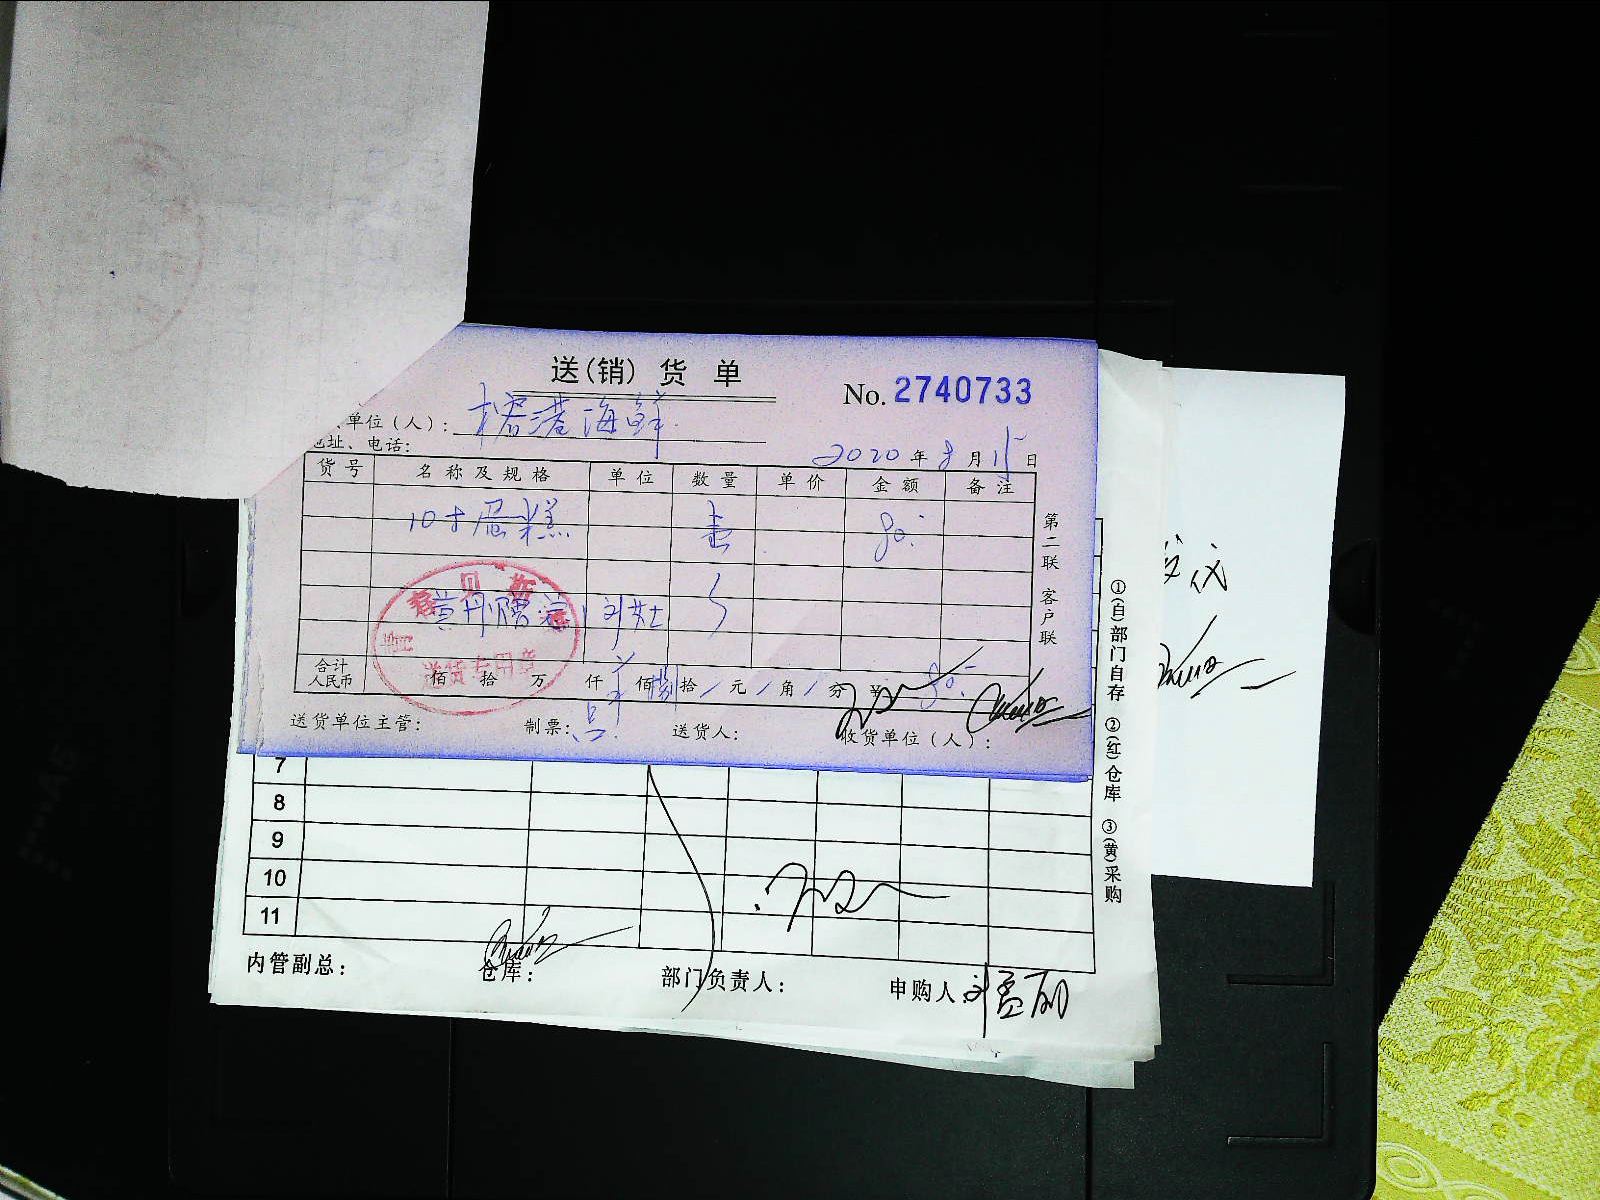 送(销) 货 单
No. 2740733
单位(人): 榕港海鲜
地址、电话:
2020 年 8 月 15 日
货号 名称及规格 单位 数量 单价 金额 备注
10寸蛋糕 壹 80.-
刘女士
合计 人民币 佰 拾 万 仟 佰 捌 拾 / 元 / 角 / 分 ¥ 80.-
送货单位主管: 制票: 送货人: 收货单位(人):
第二联 客户联
送货专用章
7
8
9
10
11
内管副总: 仓库: 部门负责人: 申购人:
①(白)部门自存 ②(红)仓库 ③(黄)采购